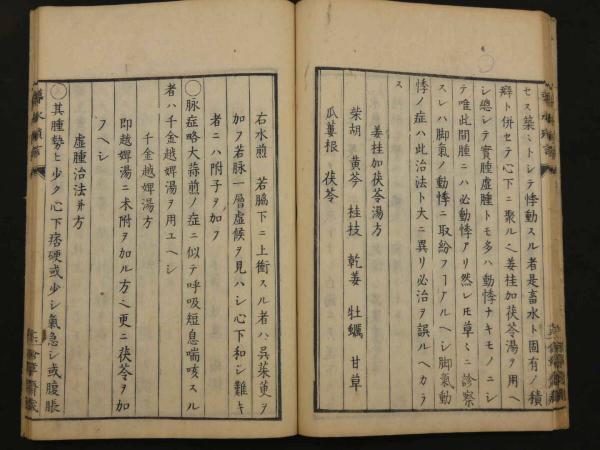 セス築ミトシテ悸動スル者是畜水ト固有ノ積
癖ト併セテ心下ニ聚ルヘ姜桂加茯苓湯ヲ用ヘ
シ總シテ實腫虛腫トモ多ハ動悸ナキモノニシ
テ唯此間腫ニハ必動悸アリ然レ𪜈草ミニ診察
スレハ脚氣ノ動悸ニ取紛フヿアルヘシ脚氣動
悸ノ症ハ此治法ト大ニ異リ必治ヲ誤ルヘカラ
ス
姜桂加茯苓湯方
柴胡 黃芩 桂枝 乾姜 牡蠣 甘草
瓜蔞根 茯苓
右水煎 若脇下ニ上衝スル者ハ呉茱萸ヲ
加フ若脉一層虛候ヲ見ハシ心下和シ難キ
者ニハ附子ヲ加フ
◯脉症略大蒜煎ノ症ニ似テ呼吸短息喘咳スル
者ハ千金越婢湯ヲ用ユヘシ
千金越婢湯方
即越婢湯ニ朮附ヲ加ル方ヘ更ニ茯苓ヲ加
フヘシ
虛腫治法幷方
◯其腫勢ヒ少ク心下痞硬或少シ氣急シ或腹脹